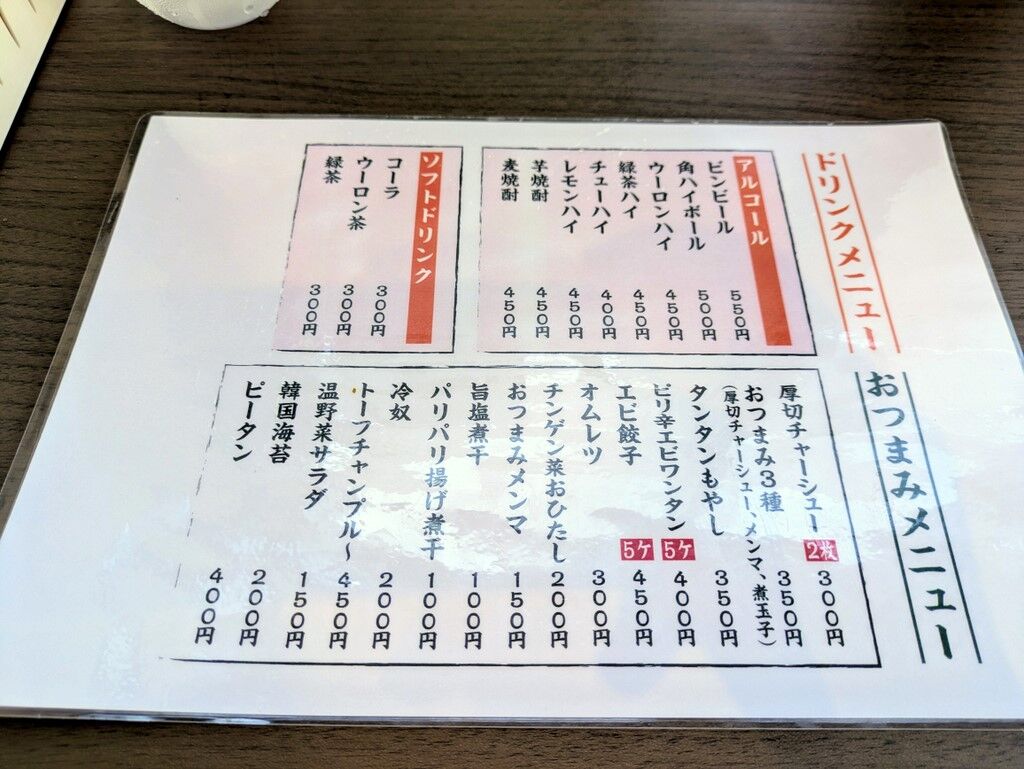 ドリンクメニュー
アルコール
ビンビール 550円
角ハイボール 500円
ウーロンハイ 450円
緑茶ハイ 450円
チューハイ 400円
レモンハイ 450円
芋焼酎 450円
麦焼酎 450円
ソフトドリンク
コーラ 300円
ウーロン茶 300円
緑茶 300円
おつまみメニュー
厚切チャーシュー 2枚 300円
おつまみ3種 350円
(厚切チャーシュー、メンマ、煮玉子)
タンタンもやし 350円
ピリ辛エビワンタン 5ケ 400円
エビ餃子 5ケ 450円
オムレツ 300円
チンゲン菜おひたし 200円
おつまみメンマ 150円
旨塩煮干 100円
パリパリ揚げ煮干 100円
冷奴 200円
トーフチャンプル〜 450円
温野菜サラダ 150円
韓国海苔 200円
ピータン 400円